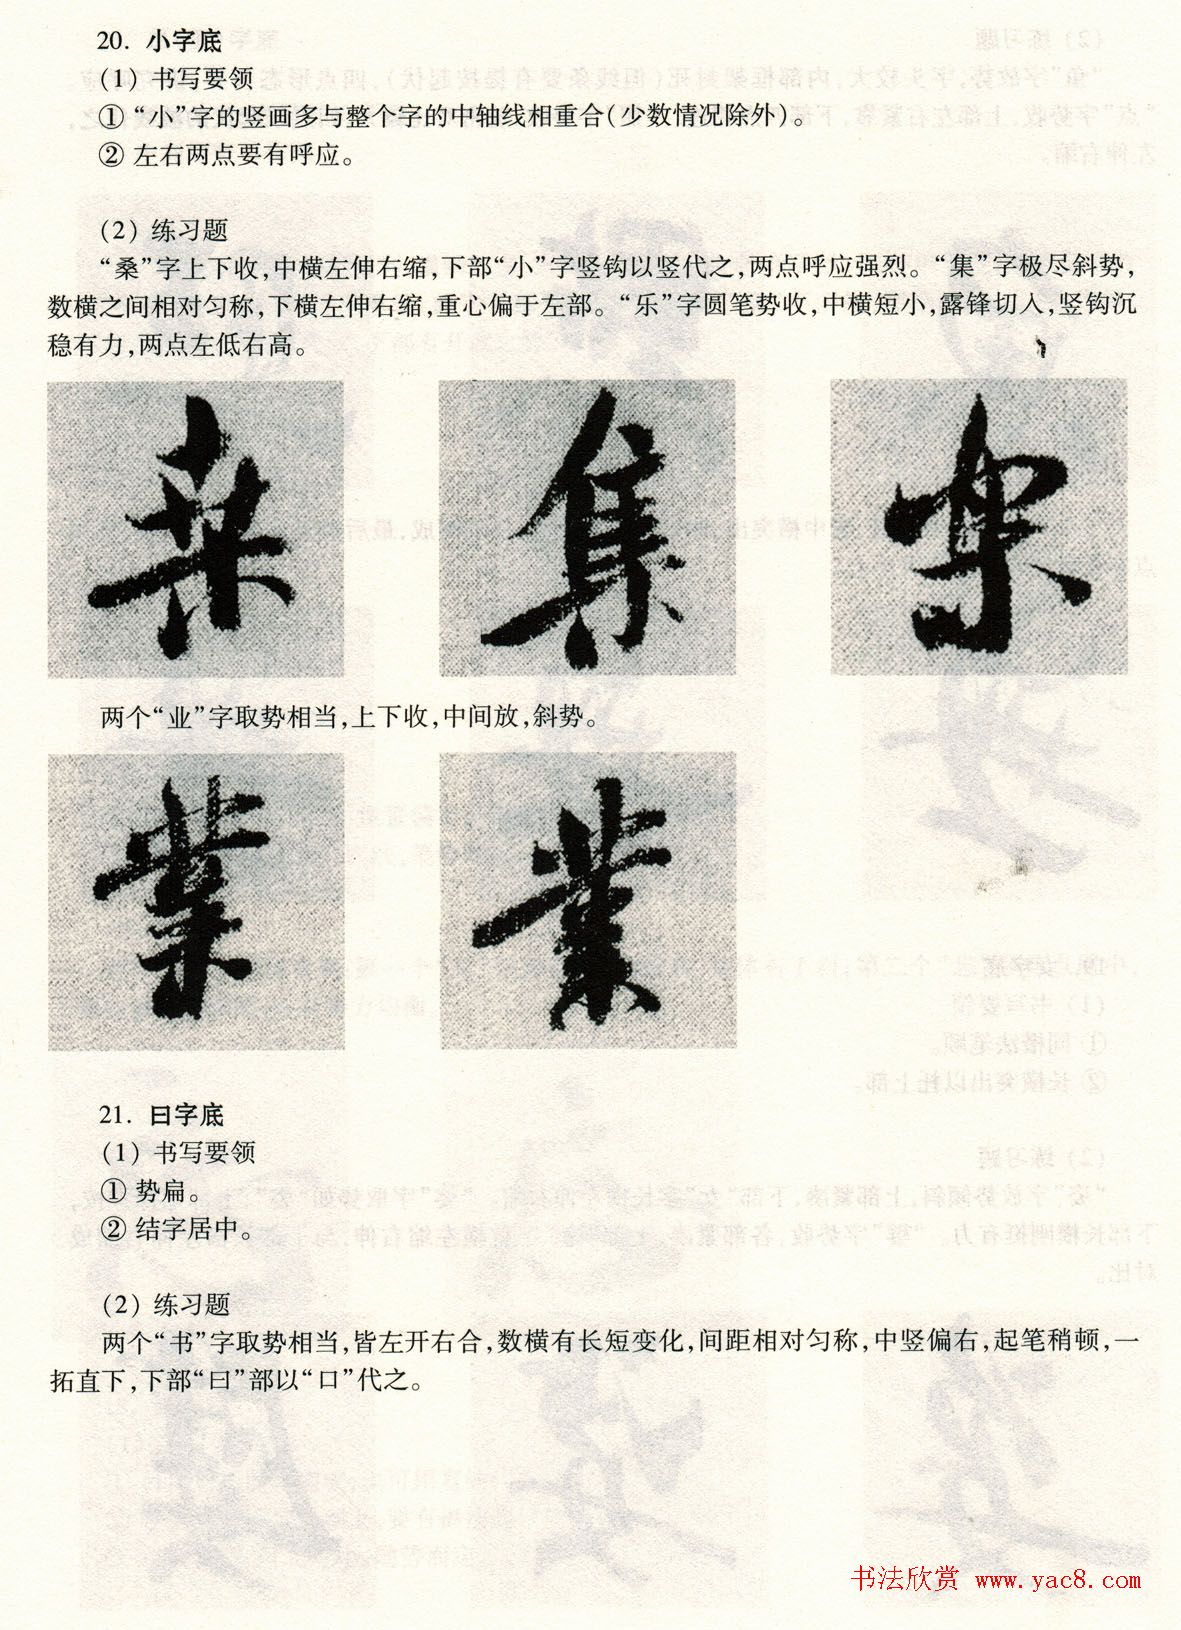 20. 小字底
(1) 书写要领
① “小”字的竖画多与整个字的中轴线相重合(少数情况除外)。
② 左右两点要有呼应。
(2) 练习题
“桑”字上下收,中横左伸右缩,下部“小”字竖钩以竖代之,两点呼应强烈。“集”字极尽斜势,
数横之间相对匀称,下横左伸右缩,重心偏于左部。“乐”字圆笔势收,中横短小,露锋切入,竖钩沉
稳有力,两点左低右高。
桑 集 樂
两个“业”字取势相当,上下收,中间放,斜势。
業 業
21. 曰字底
(1) 书写要领
① 势扁。
② 结字居中。
(2) 练习题
两个“书”字取势相当,皆左开右合,数横有长短变化,间距相对匀称,中竖偏右,起笔稍顿,一
拓直下,下部“曰”部以“口”代之。
书法欣赏 www.yac8.com